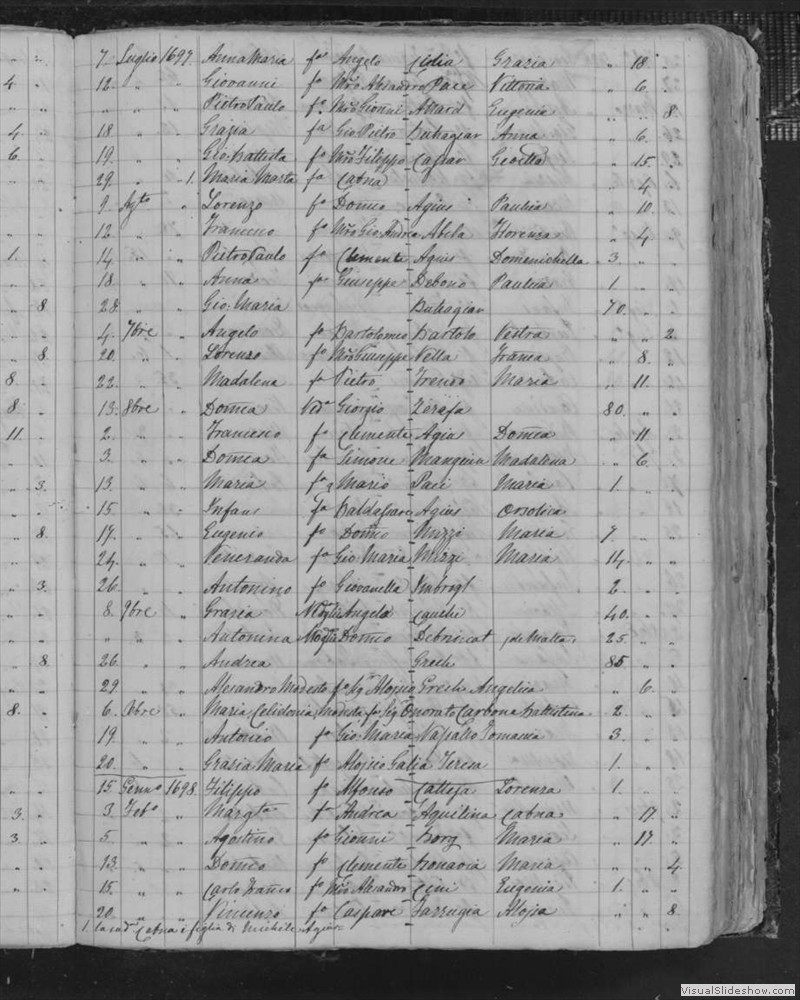 7. Luglio 1697 Anna Maria fa Angelo Cidia Grazia " 18 "
4 12. " " Giovanni fo Mro Alesandro Pace Vittoria " 6. "
" " " Pietro Paulo fo Mro Gionni Attard Eugenia " " 8
4 18 " " Grazia fa Gio Pietro Buhagiar Anna " 6. "
6. 19. " " Gio Battista fo Mro Filippo Caspar Gioella " 15. "
29. " " 1. Maria Marta fa Catna " 4 "
9 Agto " Lorenzo fo Domco Agius Paulica " 10. "
12 " " fo Mro Gio Andrea Abela Florenza " 4 "
1. 14 " " Pietro Paulo fo Clemente Agius Domenichella 3 " "
18 " " Anna fa Giuseppe Debono Paulica 1. " "
8 28. " " Gio: Maria Buhagiar 70. " "
4. 7bre " Angelo fo Bartolomeo Bartolo Vestra " " 2
8 20. " " Lorenzo fo Mro Giuseppe Vella Franca " 8. "
8. 22. " " Madalena fa Pietro Maria " 11. "
8 13. 8bre " Domca Vda Giorgio Zerafa 80. " "
11. 2. " " Francesco fo Clemente Agius Domca " 11 "
3. " " Domca fa Simone Mangion Madalena " 6. "
3. 13. " " Maria Mario Paci Maria 1. " "
15. " " Infans Agius Orsolica
8 17. " " Eugenio fo Domco Mizzi Maria 7. " "
24. " " Veneranda fa Gio Maria Mizzi Maria 14. " "
3. 26. " " Antonino fo Giovanella 2. " "
8. 9bre " Grazia Moglie Angelo Cauchi 40. " "
" " " Antonina Moglie Domco de Malta 25. " "
8 26. " " Andrea Grech 85 " "
29 " " Alesandro Modesto fo Sigr Aloysio Grech Angelica " 6. "
8. 6. Xbre " Maria Celidonia Modesta fa Sigr Onorato Carbona Battistina 2. " "
19. " " Antonio fo Gio: Maria 3. " "
20. " " Grazia Maria fa Aloysio Galia Teresa 1. " "
15 Gennro 1698. Filippo fo Alfonso Calleja Lorenza 1. " "
3. 3. Febo " Margta Andrea Aquilina Catna " 17. "
3. 5. " " Agostino fo Gionni Borg Maria " 17. "
13. " " Domco fo Clemente Bonavia Maria " " 4
15. " " Carlo Franco fo Mro Alesandro Cini Eugenia 1. " "
20. " " Vincenzo fo Caspare Farrugia Aloysia " " 8.
1. la sud. Catna è figlia di Michele Agius
VisualSlideshow.com